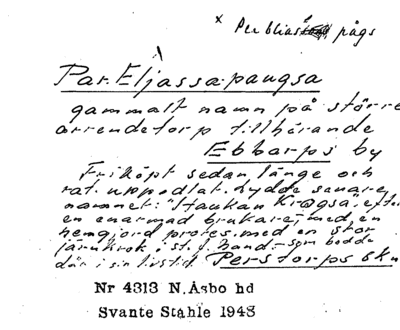 x Per Elias pågs
Par. Eljassa-paugsa
gammalt namn på större
arrendetorp tillhörande
Ebbarps by
Friköpt sedan länge och
uppodlat. hydde senare
namnet: "Haukan efter
en enarmad brukare, med en
hemgjord protes, med en stor
järnkrok i st. f. hand - som bodde
där i sin livstid. Perstorps skn
Nr 4313 N. Åsbo hd
Svante Ståhle 1943